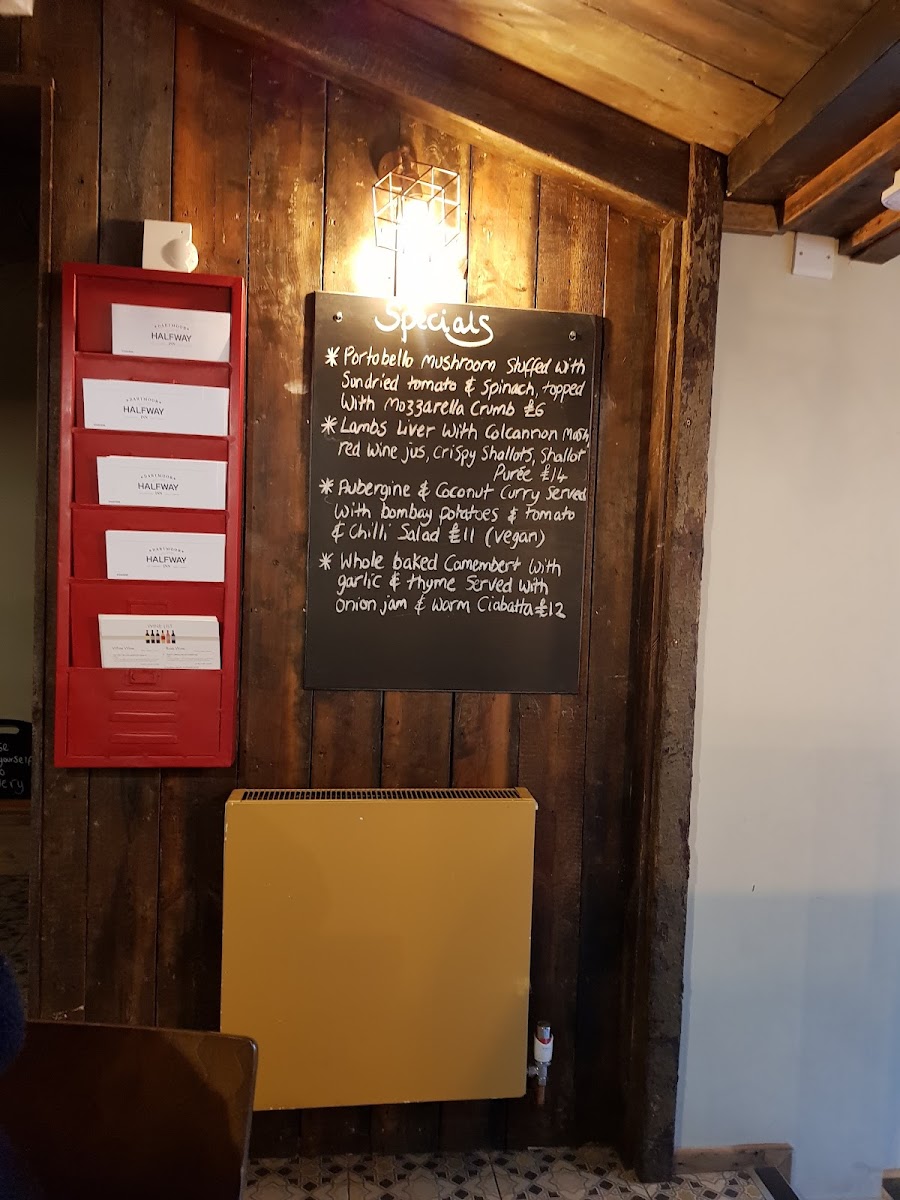 Specials
* Portobello Mushroom Stuffed with
Sundried tomato & Spinach, topped
With Mozzarella Crumb £6
* Lambs Liver With Colcannon Mash,
red Wine jus, Crispy Shallots, Shallot
Purée £14
* Aubergine & Coconut Curry Served
With bombay potatoes & tomato
& Chilli Salad £11 (vegan)
* Whole baked Camembert with
garlic & thyme Served with
Onion jam & Warm Ciabatta £12
HALFWAY
INN
HALFWAY
INN
HALFWAY
INN
HALFWAY
INN
WINE LIST
yourself